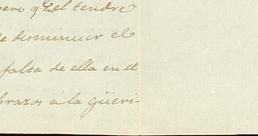 pero qᵉ el tendré
de disminuir el
falsa de ella en el
brazos á la güeri-